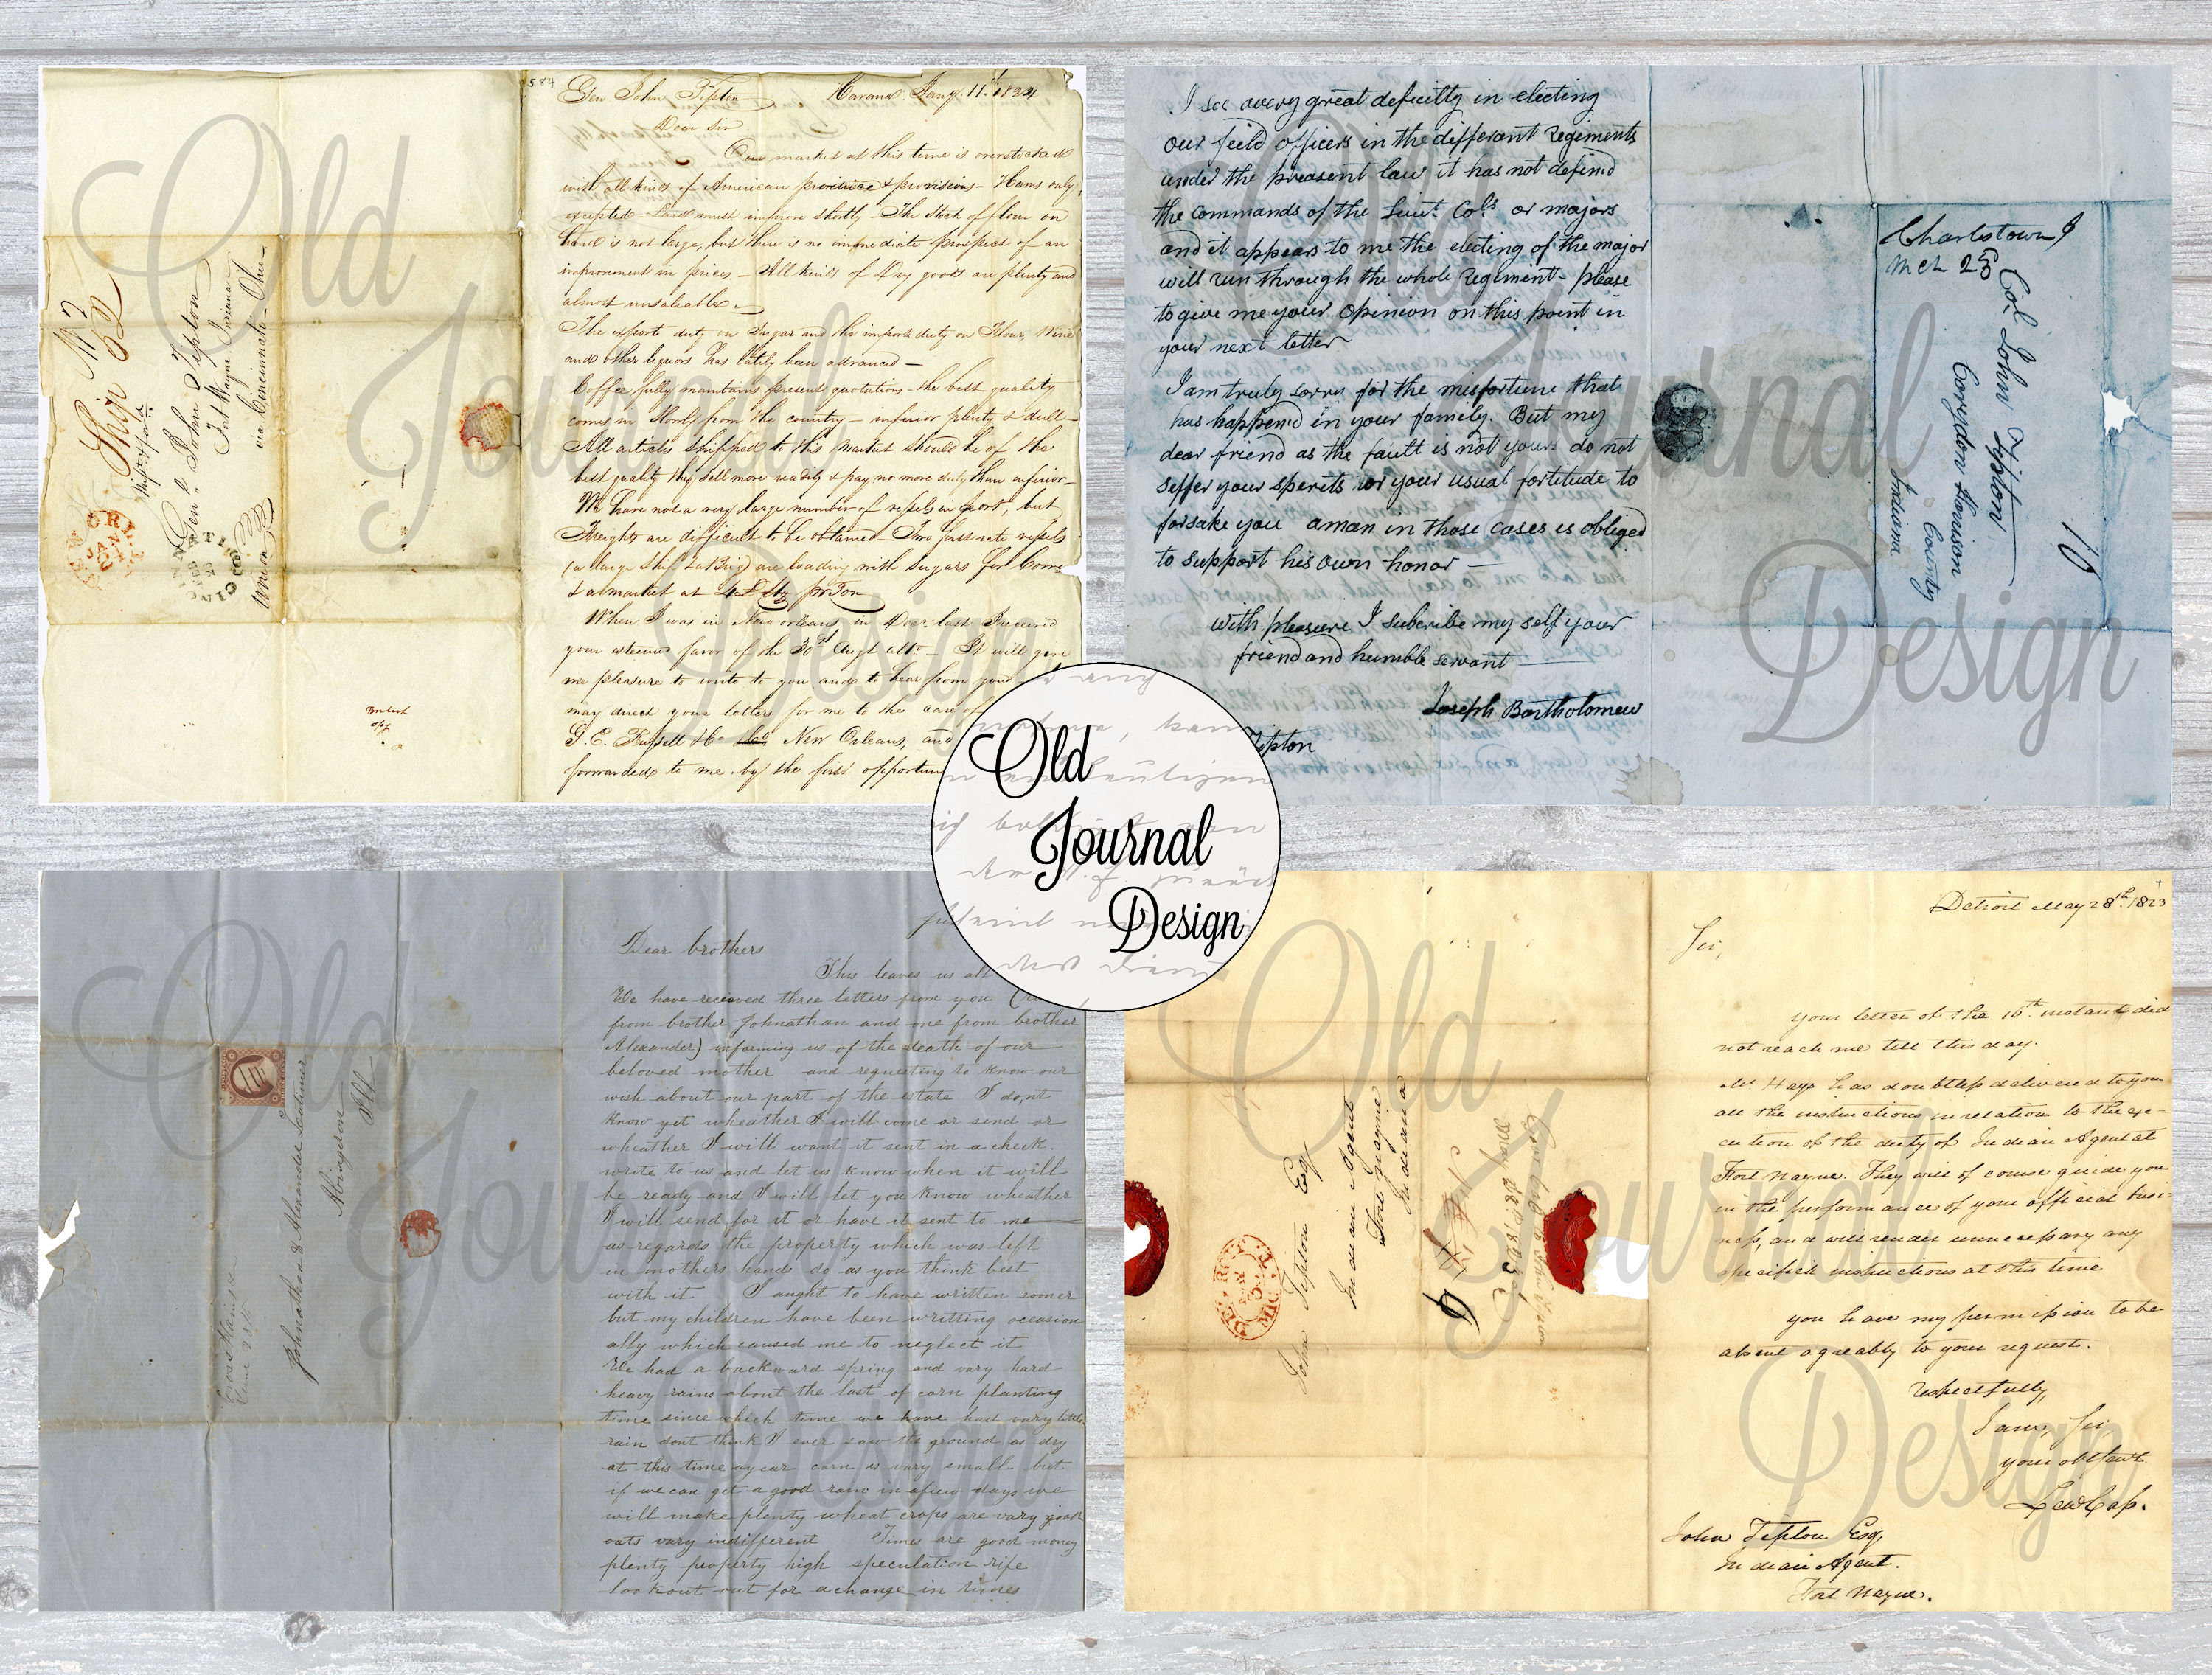 584
Gen John Tipton Havana. Jany. 11th 1824
Dear Sir
Our market at this time is overstocked
with all kinds of American produce & provisions – Hams only
excepted – Lard must improve shortly – The stock of flour on
hand is not large, but there is no immediate prospect of an
improvement in prices – All kinds of Dry goods are plenty and
almost unsaleable –
The export duty on Sugar and the import duty on Flour, Wine
and other liquors has lately been advanced –
Coffee fully maintains present quotations – the best quality
comes in slowly from the country – inferior plenty & dull –
All articles shipped to this market should be of the
best quality they sell more readily & pay no more duty than inferior –
We have not a very large number of vessels in port, but
Freights are difficult to be obtained – Two first rate vessels
(a large Ship & a Brig) are loading with Sugars for Cowes
& a market at per Ton
When I was in New Orleans in Decr. last I received
your esteemed favor of the 30th Augt ulto – It will give
me pleasure to write to you and to hear from you
may direct your letters for me to the care of
G. E. Russell & Co New Orleans, and
forwarded to me by the first opportun
Ship
Gen'l John Tipton
Fort Wayne Indiana
via Cincinnati – Ohio –
NEW YORK
JAN
CINCINNATI
FEB
I see a very great deficitty in electing
our feild officers in the differant Regiments
under the preasent law it has not defined
the commands of the Lieut. Cols or majors
and it appears to me the electing of the major
will run through the whole Regiment – please
to give me your opinion on this point in
your next letter
I am truly sorry for the misfortune that
has happened in your family. But my
dear friend as the fault is not yours do not
seffer your sperits nor your usual fortitude to
forsake you a man in those cases is obliged
to support his own honor –
with pleasure I subcribe my self your
friend and humble servant
Joseph Bartholomew
Tipton
Charlestown J
Mch 25
Col. John Tipton
Corydon Harison
County
Indiana
10
Old
Journal
Design
Dear brothers
This leaves us all
We have recieved three letters from you
from brother Johnathan and one from brother
Alexander) informing us of the death of our
beloved mother and requesting to know our
wish about our part of the estate I dont
know yet wheather I will come or send or
wheather I will want it sent in a check.
write to us and let us know when it will
be ready and I will let you know wheather
I will send for it or have it sent to me
as regards the property which was left
in mothers hands do as you think best
with it I aught to have written sooner
but my children have been writting occasion
ally which caused me to neglect it
We had a backward spring and vary hard
heavy rains about the last of corn planting
time since which time we have had vary little
rain dont think I ever saw the ground as dry
at this time a year corn is vary small but
if we can get a good rain in a few days we
will make plenty wheat crops are vary good
oats vary indifferent Times are good money
plenty property high speculation rife
lookout out for a change in times
Johnathan & Alexander Latimer
Abingdon
Ill
Detroit May 28th. 1823
Sir,
your letter of the 16th. instant did
not reach me till this day.
Mr Hays has doubtless delivered to you
all the instructions in relation to the exe=
cution of the duty of Indian Agent at
Fort Wayne. They will of course guide you
in the performance of your official busi=
ness, and will render unnecessary any
specifick instructions at this time
you have my permission to be
absent agreably to your request.
Respectfully,
I am, Sir
your obt servt
Lew Cass.
John Tipton Esq,
Indian Agent.
Fort Wayne.
John Tipton Esq
Indian Agent
Fort Wayne
Indiana
May 28 1823
Old
Journal
Design
Old
Journal
Design
Old
Journal
Design
Old
Journal
Design